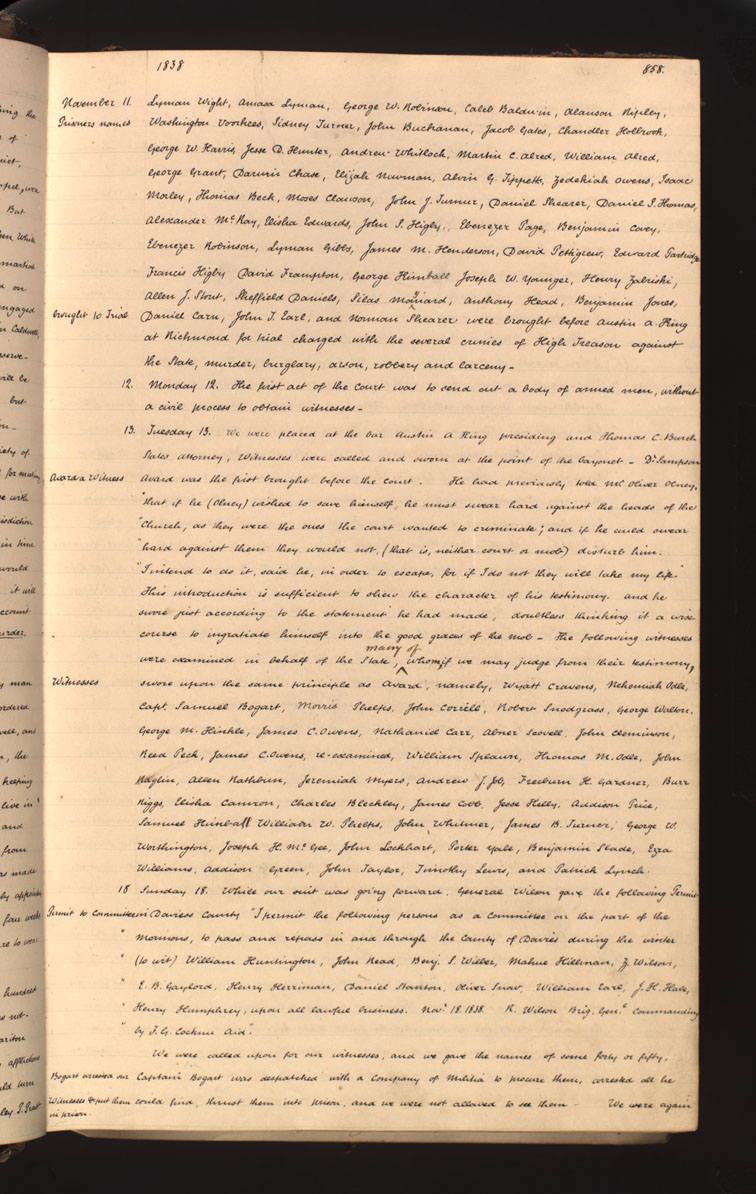 1838 858.
November 11. Lyman Wight, Amasa Lyman, George W. Robinson, Caleb Baldwin, Alanson Ripley,
Prisoners names Washington Voorhees, Sidney Turner, John Buchanan, Jacob Gates, Chandler Holbrook,
George W. Harris, Jesse D. Hunter, Andrew Whitlock, Martin C. Alred, William Alred,
George Grant, Darwin Chase, Elijah Newman, Alvin G. Tippetts, Zedekiah Owens, Isaac
Morley, Thomas Beck, Moses Clawson, John J. Turner, Daniel Shearer, Daniel S. Thomas,
Alexander McRay, Elisha Edwards, John S. Higby, Ebenezer Page, Benjamin Covey,
Ebenezer Robinson, Lyman Gibbs, James M. Henderson, David Pettigrew, Edward Partridge
Francis Higby David Frampton, George Kimball Joseph W. Younger, Henry Zabriski,
Allen J. Stout, Sheffield Daniels, Silas Maynard, Anthony Head, Benjamin Jones,
brought to Trial Daniel Carn, John T. Earl, and Norman Shearer were brought before Austin A King
at Richmond for trial charged with the several crimes of High Treason against
the State, murder, burglary, arson, robbery and larceny-
12. Monday 12. The first act of the court was to send out a body of armed men, without
a civil process to obtain witnesses-
13. Tuesday 13. We were placed at the bar Austin A King presiding and Thomas C. Burch
States attorney, Witnesses were called and sworn at the point of the bayonet - Dr Sampson
Avard a Witness Avard was the first brought before the court. He had previously told Mr Oliver Olney,
"that if he (Olney) wished to save himself, he must swear hard against the heads of the
"Church, as they were the ones the court wanted to criminate; and if he could swear
"hard against them they would not, (that is, neither court or mob) disturb him.
"I intend to do it, said he, in order to escape, for if I do not they will take my life"
This introduction is sufficient to shew the character of his testimony. and he
swore just according to the statement he had made, doubtless thinking it a wise
course to ingratiate himself into the good graces of the mob - The following witnesses
many of
were examined in behalf of the State, whom if we may judge from their testimony,
Witnesses swore upon the same principle as Avard, namely, Wyatt Cravens, Nehemiah Odle,
Capt. Samuel Bogart, Morris Phelps, John Corrill, Robert Snodgrass, George Walton,
George M. Hinkle, James C. Owens, Nathaniel Carr, Abner Scovell, John Cleminson,
Reed Peck, James C. Owens, re-examined, William Splawn, Thomas M. Odle, John
Raglin, Allen Rathbun, Jeremiah Myers, Andrew J. Job, Freeburn H. Gardner, Burr
Riggs, Elisha Camron, Charles Bleckley, James Cobb, Jesse Kelly, Addison Price,
Samuel Kimball William W. Phelps, John Whitmer, James B. Turner, George W.
Worthington, Joseph H. McGee, John Lockhart, Porter Yale, Benjamin Slade, Ezra
Williams, Addison Green, John Taylor, Timothy Lewis, and Patrick Lynch.
18 Sunday 18. While our suit was going forward. General Wilson gave the following Permit
Permit to Committee in Daviess County "I permit the following persons as a Committee on the part of the
" Mormons, to pass and repass in and through the County of Davies during the winter
" (to wit) William Huntington, John Read, Benj. S. Wilber, Mahue Hillman, Z. Wilson,
" E. B. Gaylord, Henry Herriman, Daniel Stanton, Oliver Snow, William Earl, J. H. Hale,
" Henry Humphrey, upon all lawful business. Nov. 18. 1838. R. Wilson Brig. Genl Commanding
" by F. G. Cochnu Aid".
We were called upon for our witnesses, and we gave the names of some forty or fifty.
Bogart arrested our Captain Bogart was despatched with a Company of Militia to procure them, arrested all he
Witnesses & put them could find, thrust them into prison, and we were not allowed to see them - We were again
in prison.